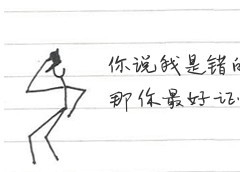 你说我是错的
那你最好证